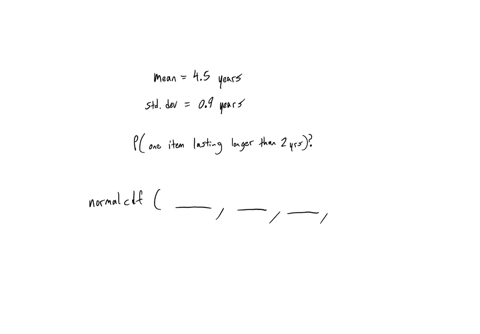 mean = 4.5 years
std. dev = 0.9 years
P(one item lasting longer than 2 yrs)?
normalcdf ( ___, ___, ___,